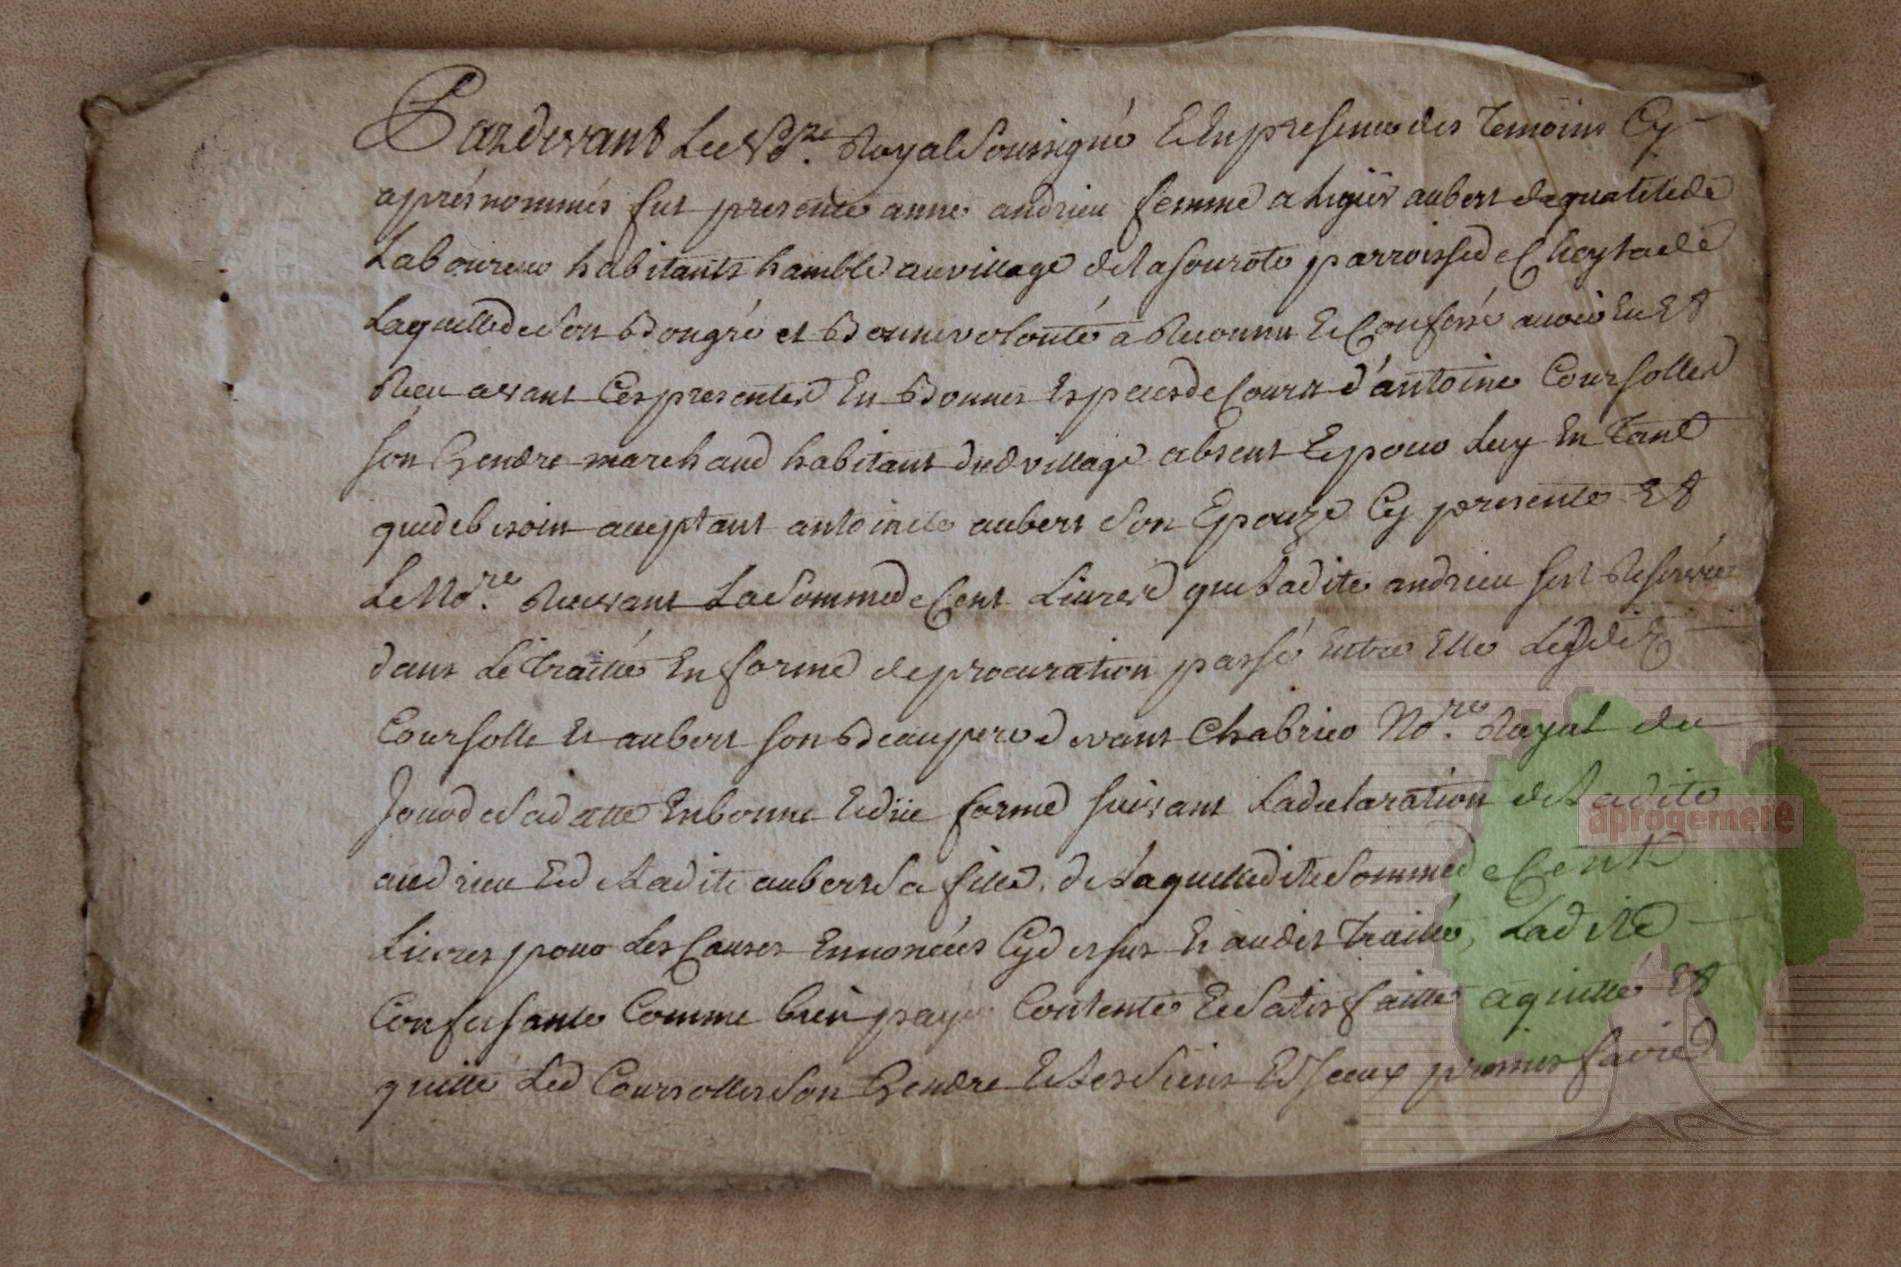 Pardevant Le No.re Royal Soussigné Et En presence des Temoins Cy
aprés nommés fut presente anne andrieu femme a ligier aubert de qualité de
Laboureur habitants hamble au village de Lasourote parroisse de Cheylade
Laquelle de Son Bon gré et Bonne volonté a Reconnu Et Confessé avoir Eu Et
Receu avant Ces presentes En Bonnes Especes de Cours d'antoine Coursolles
Son Gendre marchand habitant dud village absent Et pour Luy En Tant
que de besoin acceptant antoinete aubert Son Epouze Cy presente Et
Le No.re Recevant La Somme de Cent Livres que Ladite andrieu s'est Reservée
dans Le Traitté En forme de procuration passé Entre Elle Led
Coursolle Et aubert son Beaupere devant Chabrier No.re Royal du
Jour de Sa datte En bonne Et düe forme suivant La declaration de Ladite
andrieu Et de Ladite aubert Sa fille, de Laquelle dite Somme de Cent
Livres pour Les Causes Ennoncées Cy dessus Et audit Traitté, Ladite
Confessante Comme bien payée Contente Et Satisfaitte aquitte Et
quitte Led Coursolles Son Gendre Et Les Siens Et Iceux promis faire
aprogemere